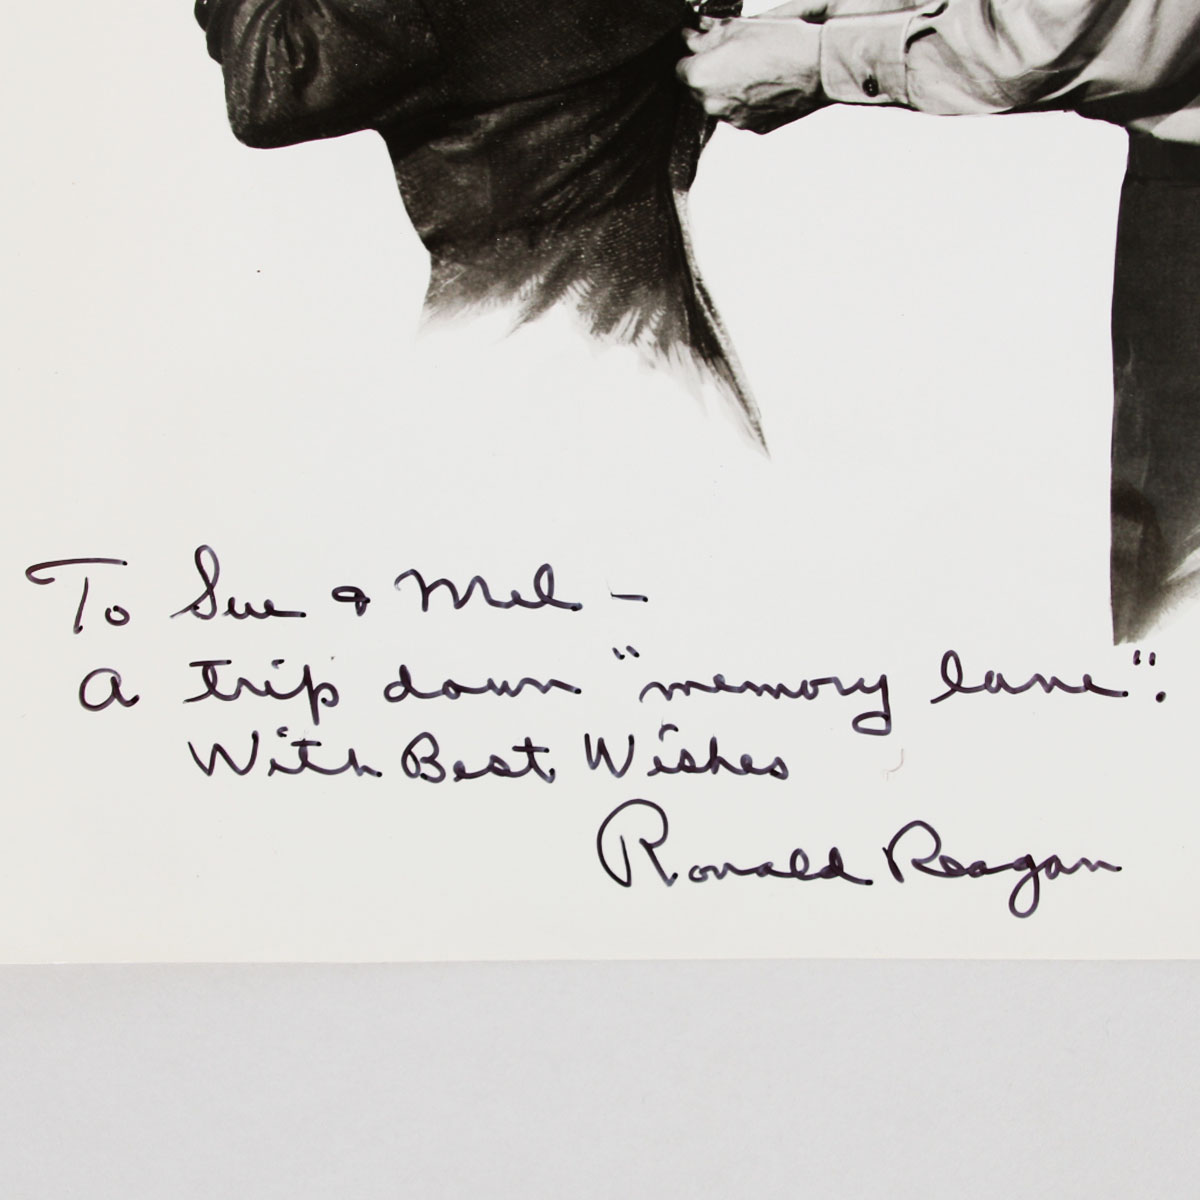 To Sue & Mel –
A trip down "memory lane".
With Best Wishes
Ronald Reagan